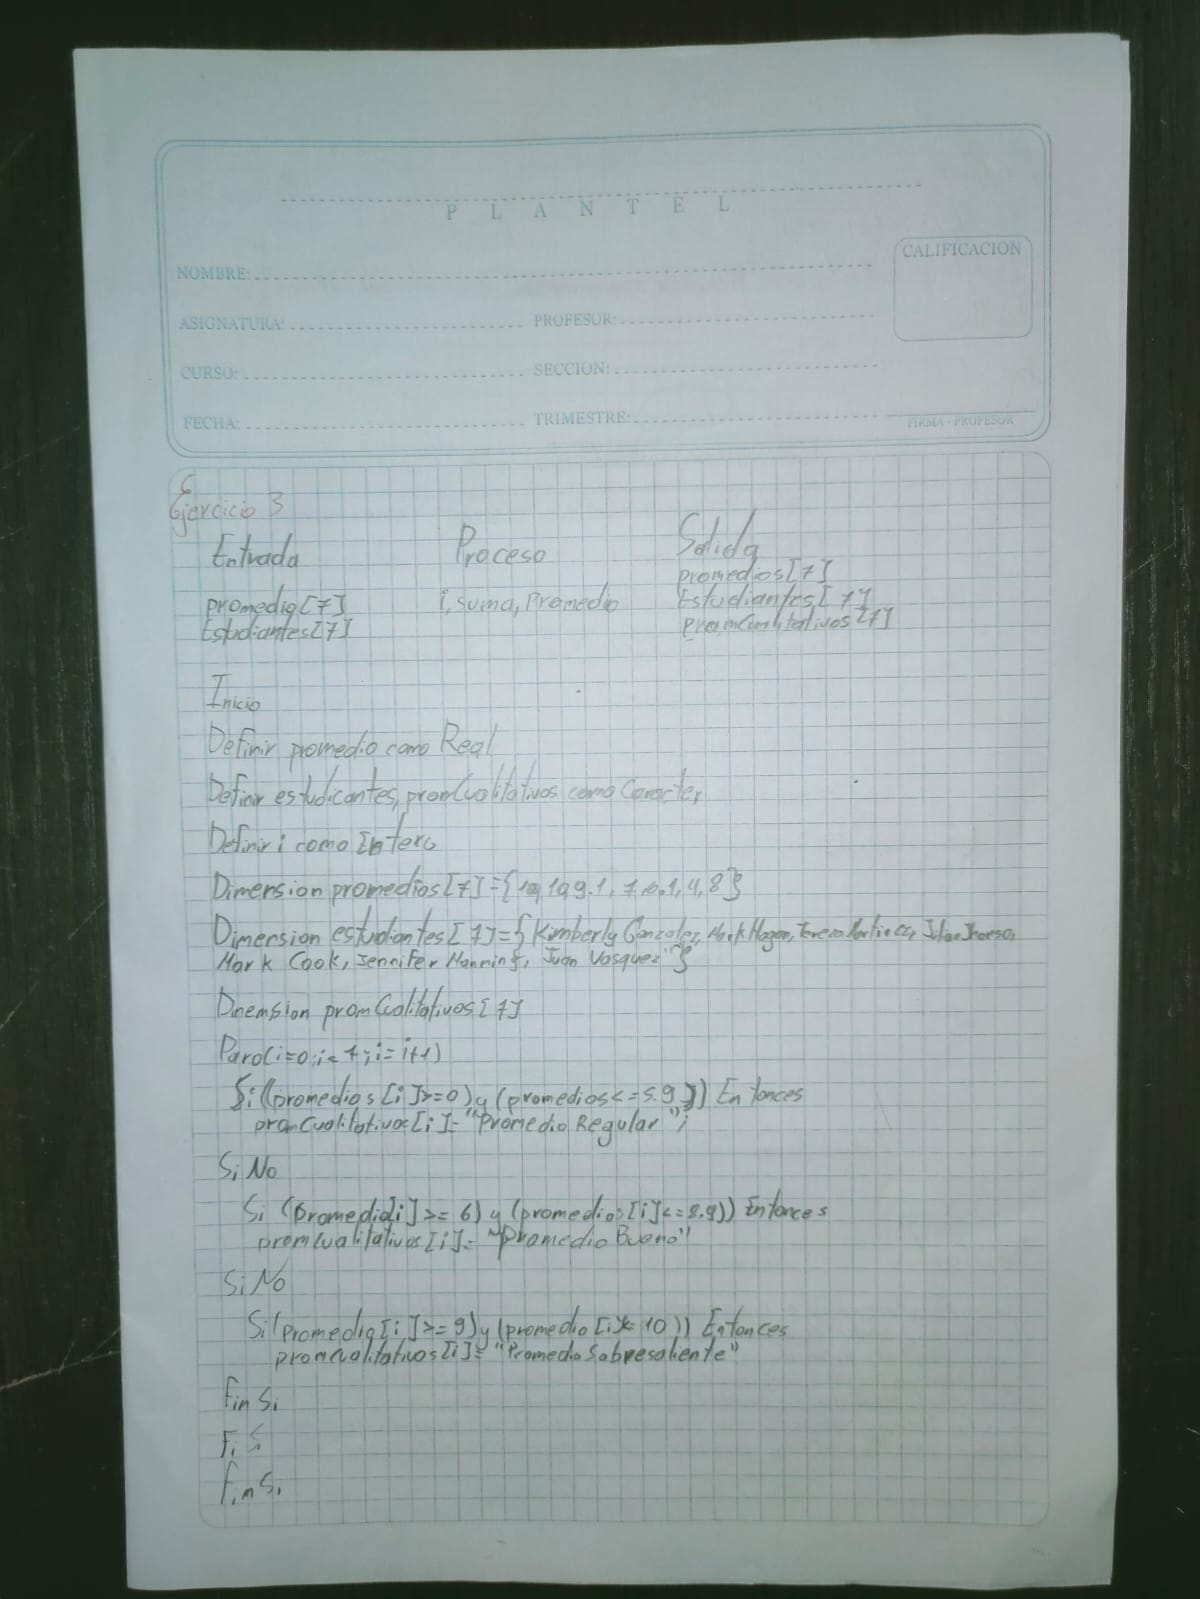 PLANTEL
CALIFICACION
NOMBRE:
ASIGNATURA: PROFESOR:
CURSO: SECCION:
FECHA: TRIMESTRE: FIRMA - PROFESOR
Ejercicio 3
Entrada Proceso Salida
promedios[7]
promedio[7] i, suma, Promedio Estudiantes[7]
Estudiantes[7] promCualitativos[7]
Inicio
Definir promedio como Real
Definir estudicantes, promCualitativos como Caracter,
Definir i como Entero
Dimension promedios[7]={10, 10, 9.1, 7, 6.1, 4, 8}
Dimersion estudiantes[7]={"Kimberly Gonzalez, Mark Hogan, Teresa Martinez,
Mark Cook, Jennifer Manning, Juan Vasquez"}
Dinension promCualitativos[7]
Para(i=0; i<7; i=i+1)
Si((promedios[i]>=0) y (promedios<=5.9)) Entonces
promCualitativos[i]="Promedio Regular";
Si No
Si (Promedio[i]>=6) y (promedios[i]<=8.9)) Entonces
promCualitativos[i]="Promedio Bueno"
Si No
Si(Promedio[i]>=9) y (promedio[i]<=10)) Entonces
promCualitativos[i]="Promedio Sobresaliente"
Fin Si
Fi Si
Fin Si